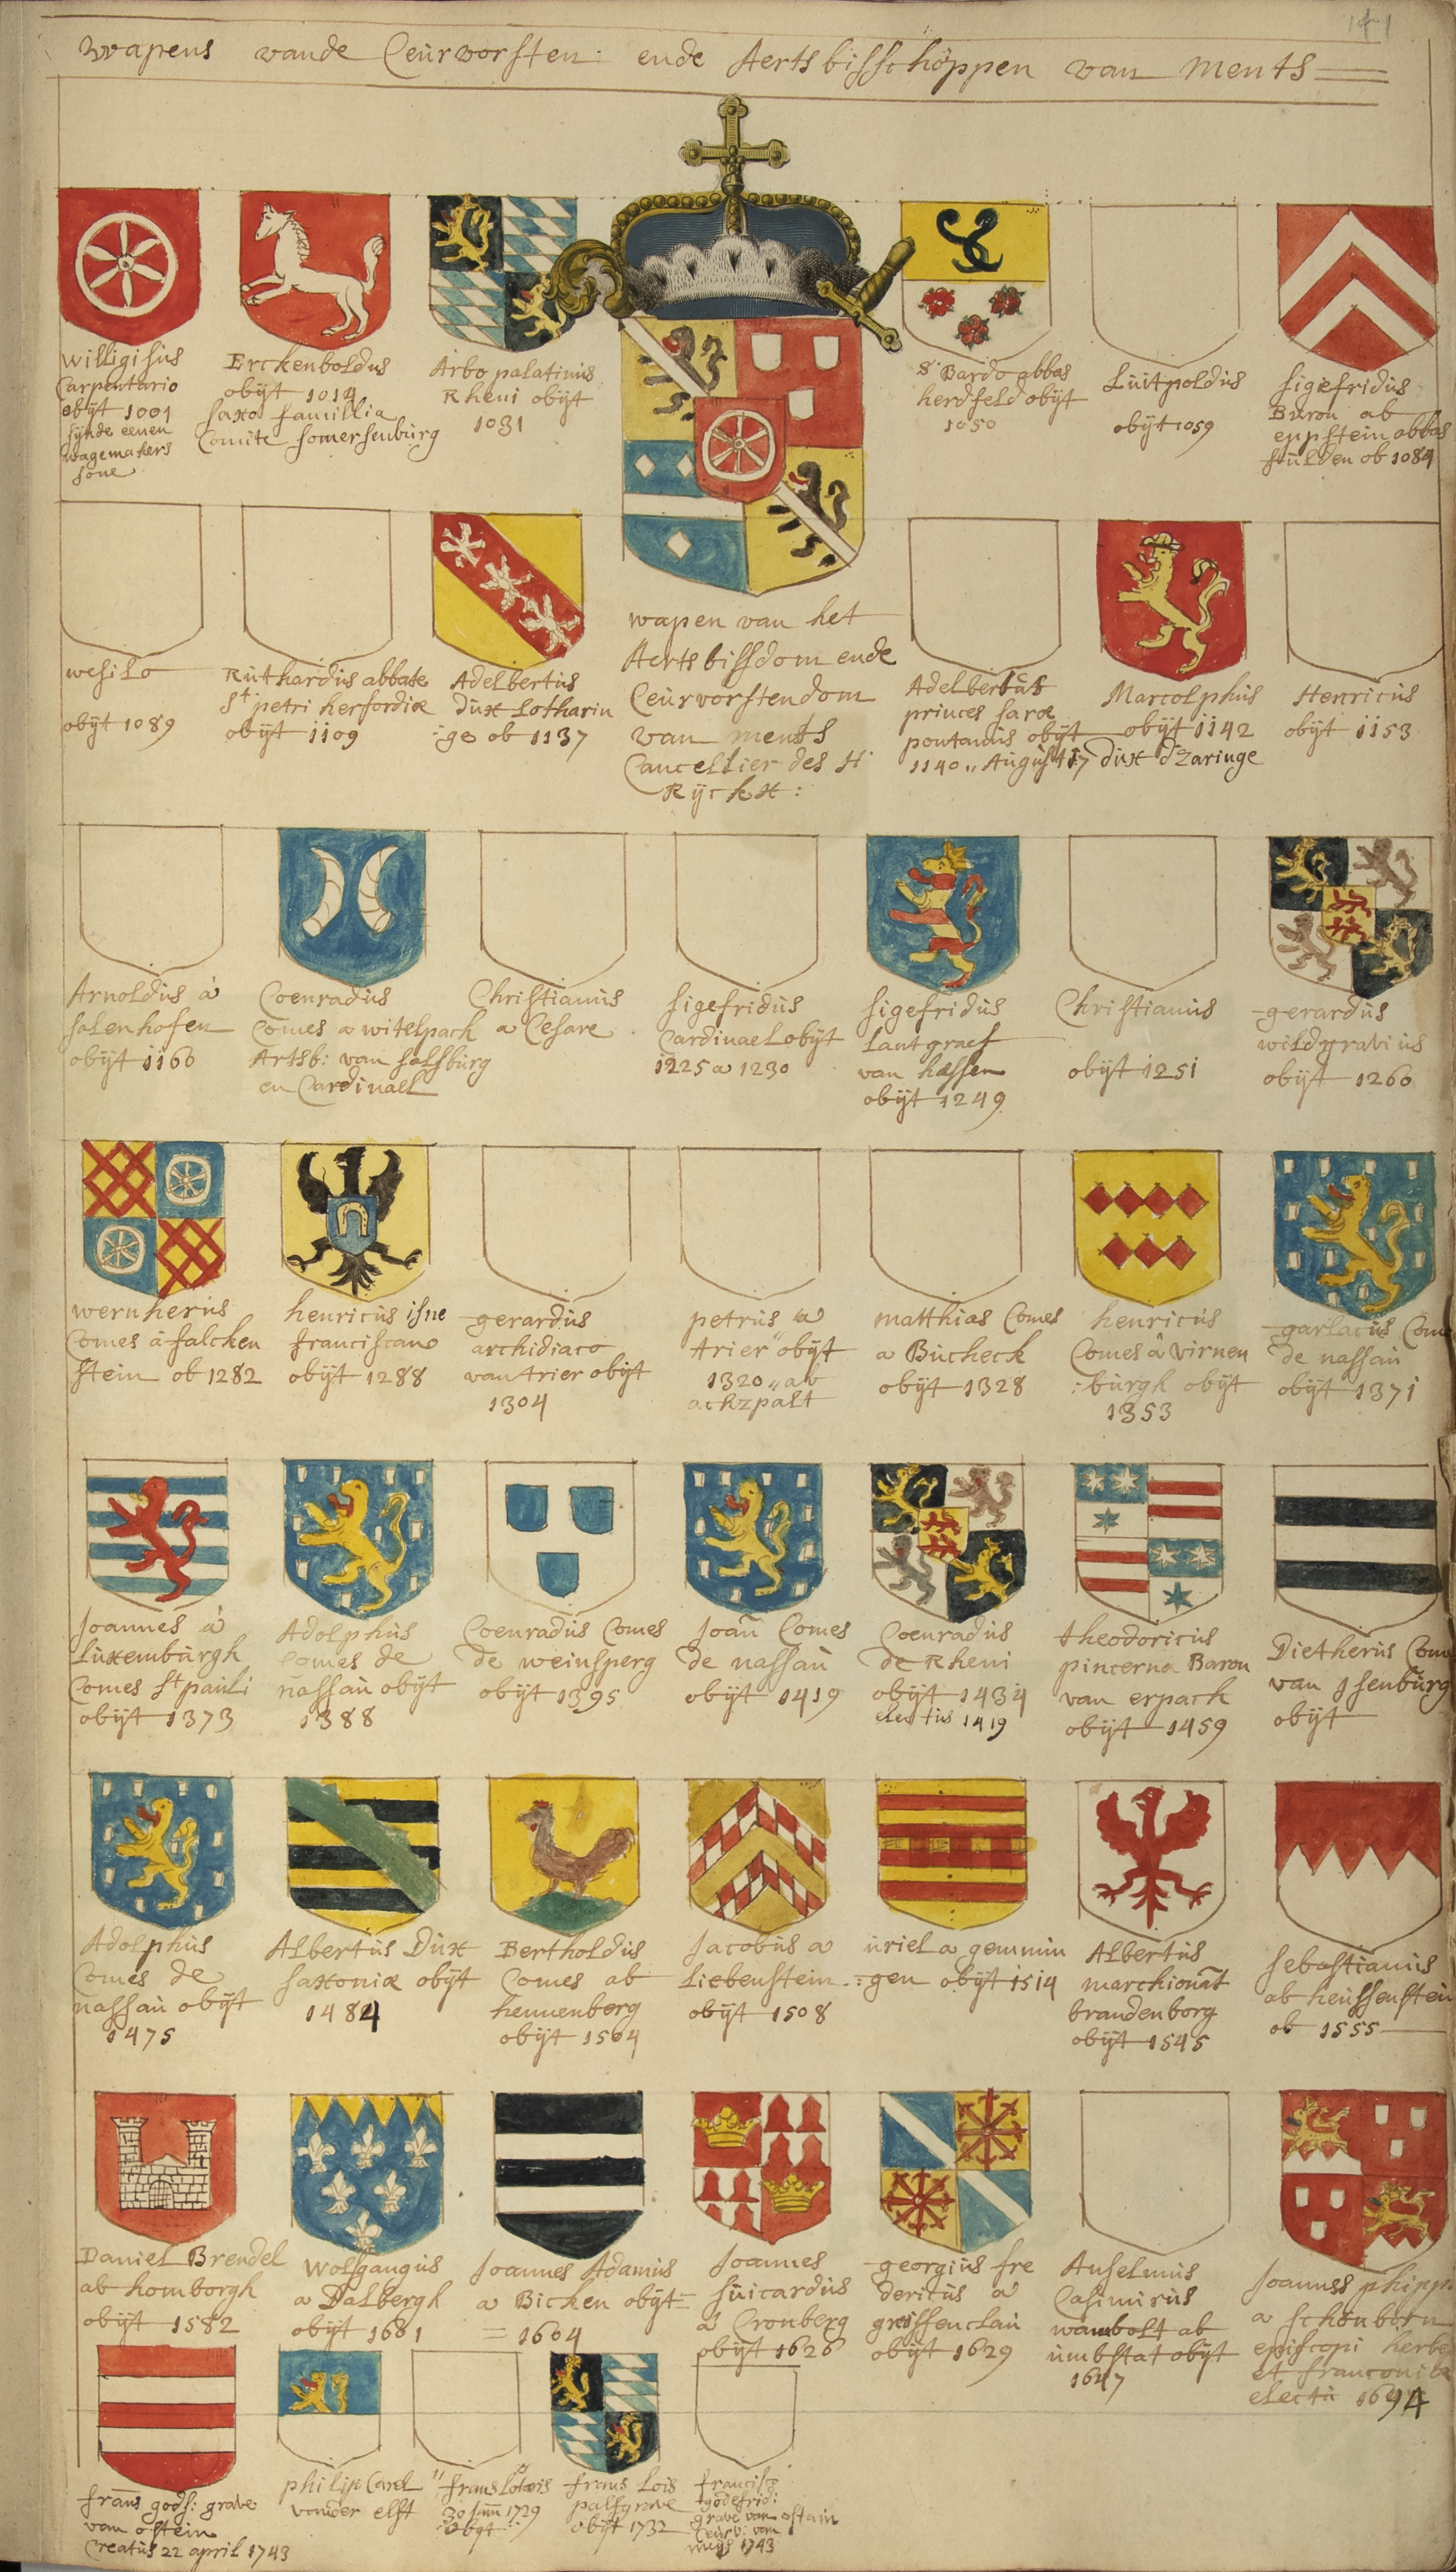 141
Wapens vande Ceurvorsten ende Aertsbisschoppen van Ments
Willigisus
Carpentario
obijt 1001
sijnde eenen
wagemakers
sone
Erckenboldus
obijt 1014
saxo famillia
Comite somersenburg
Arbo palatinus
Rheni obijt
1031
S Bardo abbas
herdfeld obijt
1050
Luitpoldus
obijt 1059
Sigefridus
Baron ab
eppstein abbas
fulden ob 1084
wesilo
obijt 1089
Ruthardus abbate
St petri herfordiæ
obijt 1109
Adelbertus
dux Lotharin
:ge ob 1137
wapen van het
Aertsbissdom ende
Ceurvorstendom
van ments
Cancellier des H
Rijckx :
Adelbertus
princes saræ
pontanus obijt
1140 ,, August 17
Marcolphus
obijt 1142
dux d'zaringe
Henricus
obijt 1153
Arnoldus a
salenhofen
obijt 1160
Coenradus
Comes a witelpach
Artsb: van salsburg
en Cardinael
Christianus
a Cesare
sigefridus
Cardinael obijt
1225 a 1230
sigefridus
Lantgraef
van hassen
obijt 1249
Christianus
obijt 1251
gerardus
wildgravius
obijt 1260
wernherus
Comes a falcken
stein ob 1282
henricus isne
franciscano
obijt 1288
gerardus
archidiaco
van trier obijt
1304
petrus a
trier obijt
1320 ,, av
achzpalt
matthias Comes
a Bucheck
obijt 1328
henricus
Comes a virnen
:burgh obijt
1353
garlacus Com
de nassau
obijt 1371
Joannes a
Luxemburgh
Comes St pauli
obijt 1373
Adolphus
comes de
nassau obijt
1388
Coenradus Comes
de weinsperg
obijt 1395
Joan Comes
de nassau
obijt 1419
Coenradus
de Rheni
obijt 1434
electus 1419
theodoricus
pincerna Baron
van erpach
obijt 1459
Dietherus Com
van Isenburg
obijt
Adolphus
Comes de
nassau obijt
1475
Albertus Dux
saxoniæ obijt
1484
Bertholdus
Comes ab
hennenberg
obijt 1504
Jacobus a
Liebenstein
obijt 1508
uriel a gemmin
:gen obijt 1514
Albertus
marchionat
brandenborg
obijt 1545
sebastianus
ab heussenstein
ob 1555
Daniel Brendel
ab homborgh
obijt 1582
wolfgangus
a Dalbergh
obijt 1681
Joannes Adamus
a Bicken obijt
1604
Joannes
suicardus
a Cronberg
obijt 1626
georgius fre
dericus a
greiffenclau
obijt 1629
Anselmus
Casimirus
wambolt ab
umbstat obijt
1647
Joannes phipp
a schonborn
episcopi herb
et franconiæ
electu 1694
frans godf: grave
van ostein
Creatus 22 april 1743
philip Carel
vander elst
frans Loteris
30 Jun 1729
obijt
frans Lois
palsgrave
obijt 1732
francisc
godefridi
grave van ostain
Ceurv: van
mens 1743